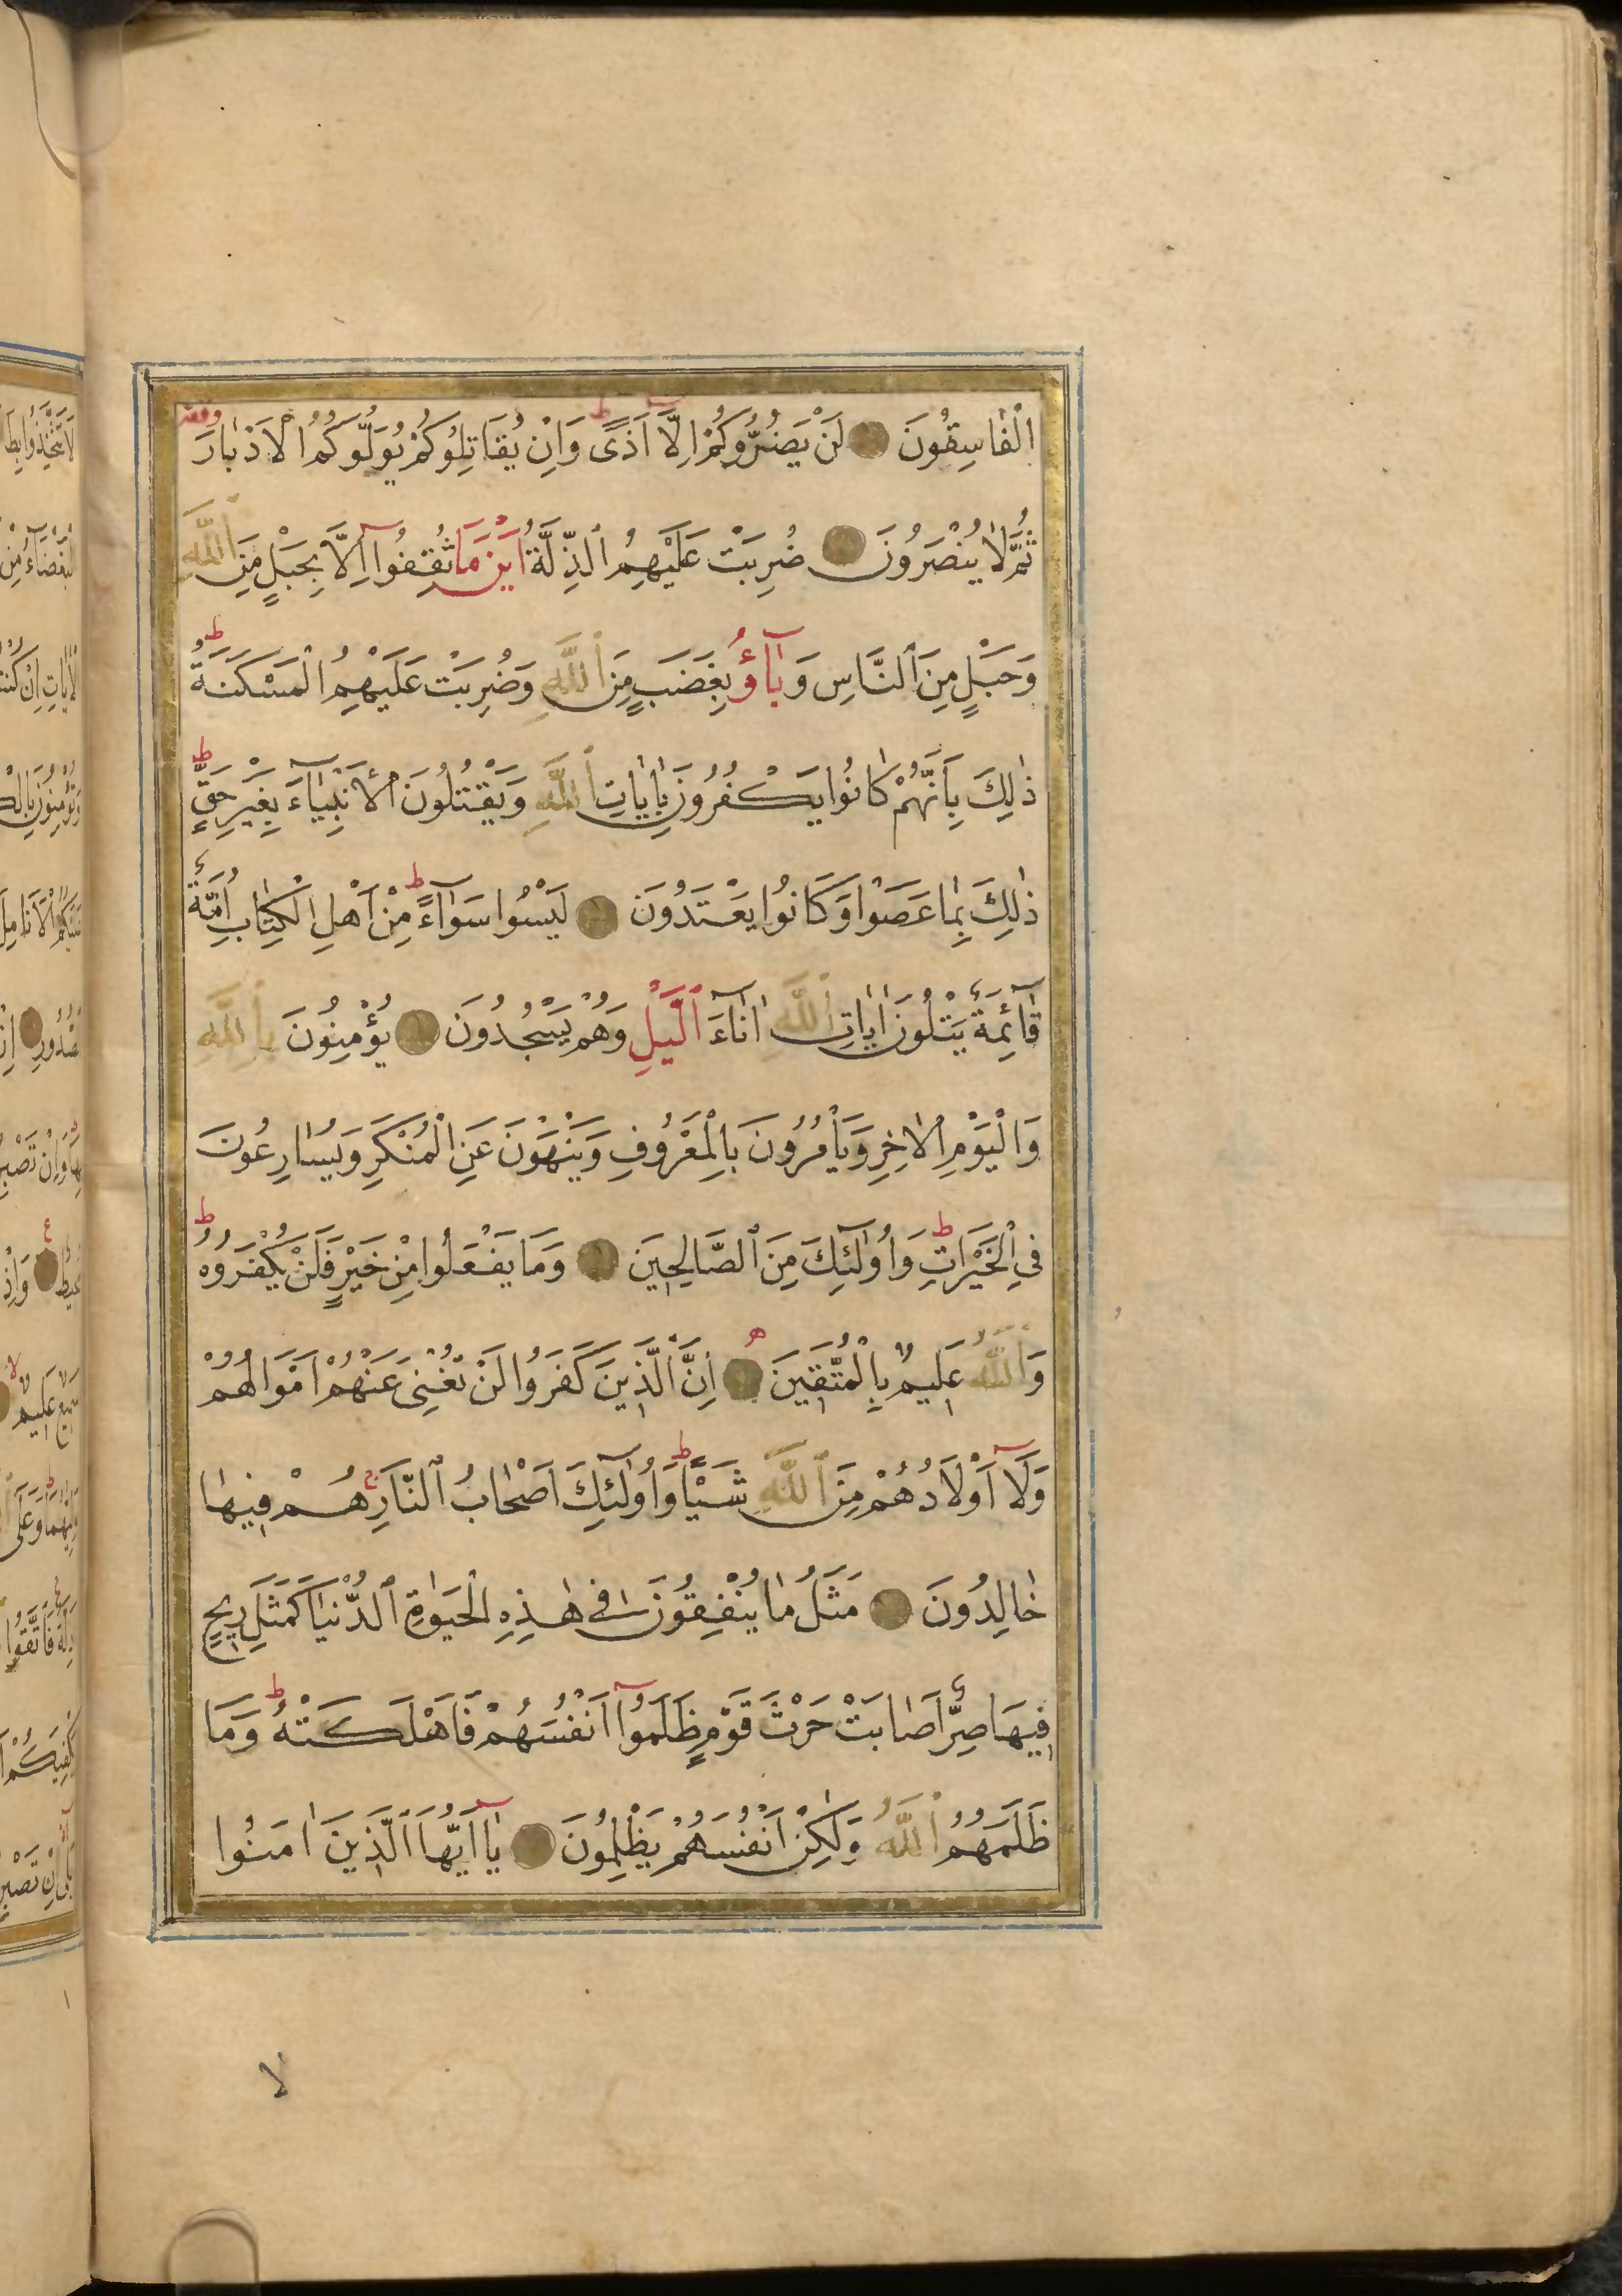 الْفَاسِقُونَ لَنْ يَضُرُّوكُمْ اِلَّا اَذًى وَاِنْ يُقَاتِلُوكُمْ يُوَلُّوكُمُ الْاَدْبَارَ
ثُمَّ لَا يُنْصَرُونَ ضُرِبَتْ عَلَيْهِمُ الذِّلَّةُ اَيْنَ مَا ثُقِفُوا اِلَّا بِحَبْلٍ مِنَ اللَّهِ
وَحَبْلٍ مِنَ النَّاسِ وَبَاؤُ بِغَضَبٍ مِنَ اللَّهِ وَضُرِبَتْ عَلَيْهِمُ الْمَسْكَنَةُ
ذٰلِكَ بِاَنَّهُمْ كَانُوا يَكْفُرُونَ بِاٰيَاتِ اللَّهِ وَيَقْتُلُونَ الْاَنْبِيَاءَ بِغَيْرِ حَقٍّ
ذٰلِكَ بِمَا عَصَوْا وَكَانُوا يَعْتَدُونَ لَيْسُوا سَوَاءً مِنْ اَهْلِ الْكِتَابِ اُمَّةٌ
قَائِمَةٌ يَتْلُونَ اٰيَاتِ اللَّهِ اٰنَاءَ الَّيْلِ وَهُمْ يَسْجُدُونَ يُؤْمِنُونَ بِاللَّهِ
وَالْيَوْمِ الْاٰخِرِ وَيَأْمُرُونَ بِالْمَعْرُوفِ وَيَنْهَوْنَ عَنِ الْمُنْكَرِ وَيُسَارِعُونَ
فِي الْخَيْرَاتِ وَاُولٰئِكَ مِنَ الصَّالِحِينَ وَمَا يَفْعَلُوا مِنْ خَيْرٍ فَلَنْ يُكْفَرُوهُ
وَاللَّهُ عَلِيمٌ بِالْمُتَّقِينَ اِنَّ الَّذِينَ كَفَرُوا لَنْ تُغْنِىَ عَنْهُمْ اَمْوَالُهُمْ
وَلَا اَوْلَادُهُمْ مِنَ اللَّهِ شَيْئًا وَاُولٰئِكَ اَصْحَابُ النَّارِ هُمْ فِيهَا
خَالِدُونَ مَثَلُ مَا يُنْفِقُونَ فِى هٰذِهِ الْحَيٰوةِ الدُّنْيَا كَمَثَلِ رِيحٍ
فِيهَا صِرٌّ اَصَابَتْ حَرْثَ قَوْمٍ ظَلَمُوا اَنْفُسَهُمْ فَاَهْلَكَتْهُ وَمَا
ظَلَمَهُمُ اللَّهُ وَلٰكِنْ اَنْفُسَهُمْ يَظْلِمُونَ يَا اَيُّهَا الَّذِينَ اٰمَنُوا
لا